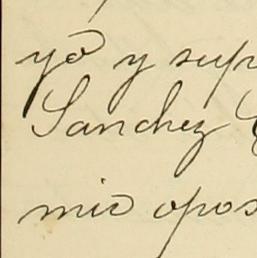 yo y sup
Sanchez
mio opos